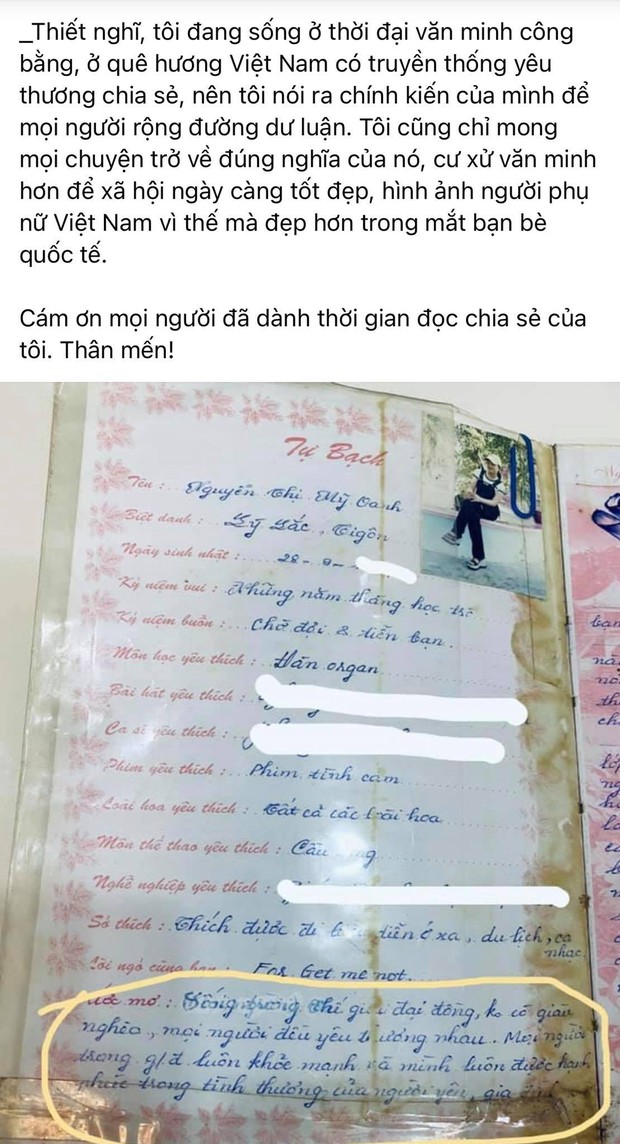 _Thiết nghĩ, tôi đang sống ở thời đại văn minh công
bằng, ở quê hương Việt Nam có truyền thống yêu
thương chia sẻ, nên tôi nói ra chính kiến của mình để
mọi người rộng đường dư luận. Tôi cũng chỉ mong
mọi chuyện trở về đúng nghĩa của nó, cư xử văn minh
hơn để xã hội ngày càng tốt đẹp, hình ảnh người phụ
nữ Việt Nam vì thế mà đẹp hơn trong mắt bạn bè
quốc tế.
Cám ơn mọi người đã dành thời gian đọc chia sẻ của
tôi. Thân mến!
Tự Bạch
Tên : Nguyễn Thị Mỹ Oanh
Biệt danh : Tigôn
Ngày sinh nhật : 28 - 8 -
Kỷ niệm vui : Những năm tháng học trò
Kỷ niệm buồn : Chờ đợi & tiễn bạn.
Môn học yêu thích : Đàn organ
Bài hát yêu thích :
Ca sĩ yêu thích :
Phim yêu thích : Phim tình cảm
Loài hoa yêu thích : Tất cả các loài hoa
Môn thể thao yêu thích : Cầu
Nghề nghiệp yêu thích :
Sở thích : Thích được đi diễn ở xa, du lịch, ca
nhạc
Lời ngỏ cùng bạn : For Get me not.
Ước mơ : Sống trong thế giới đại đồng, ko có giàu
nghèo, mọi người đều yêu thương nhau. Mọi người
trong g/đ luôn khỏe mạnh và mình luôn được hạnh
phúc trong tình thương của người yêu, gia
bạn